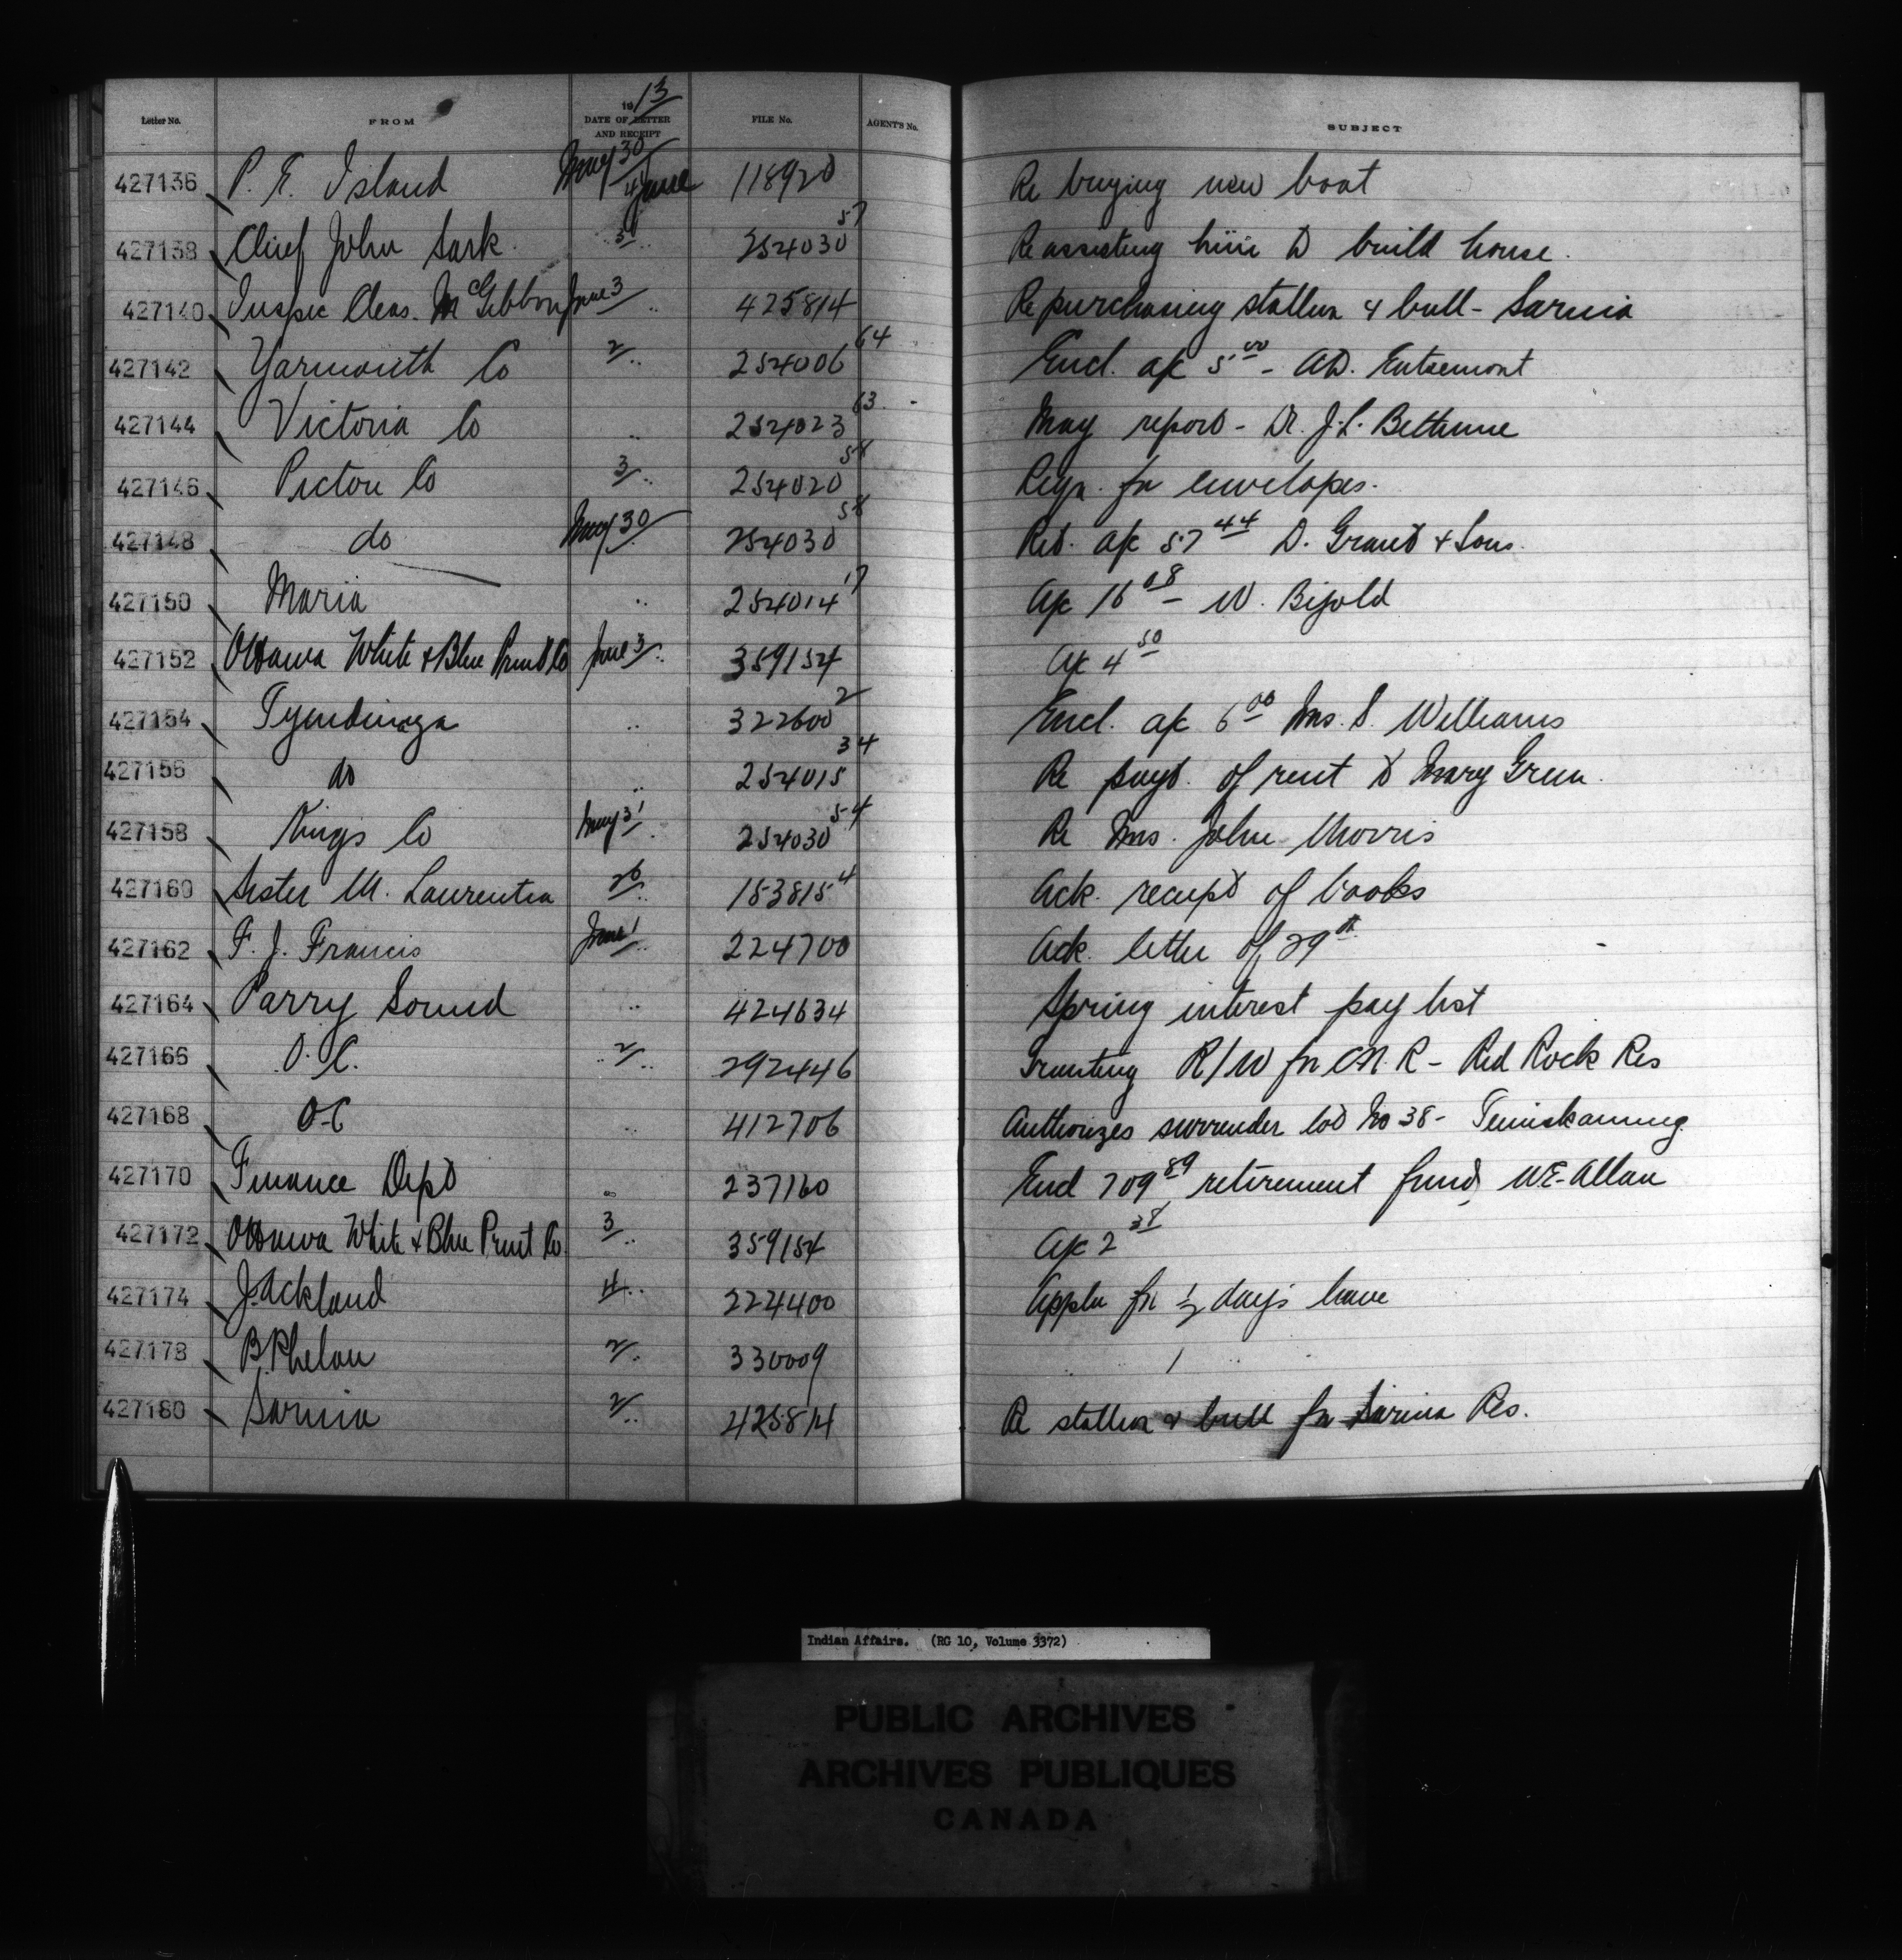 Letter No. FROM 1913 DATE OF LETTER AND RECEIPT FILE No. AGENT'S No. SUBJECT
427136 P. E. Island May 30 4 June 118920 Re buying new boat
427138 Chief John Sark 31 " 254030 57 Re assisting him to build house.
427140 Inspec Chas. McGibbon June 3 " 425814 Re purchasing stallion & bull - Sarnia
427142 Yarmouth Co 2 " 254006 64 Encl. a/c 5 00 - A.D. Entremont
427144 Victoria Co " 254023 63 May report - Dr. J.L. Bethune
427146 Pictou Co 3 " 254020 58 Reqn. for envelopes.
427148 do May 30 " 254030 58 Ret. a/c 57 44 D. Grant & Sons.
427150 Maria " 254014 17 a/c 16 08 - W. Bijold
427152 Ottawa White & Blue Print Co June 3 " 359154 a/c 4 50
427154 Tyendinaga " 322600 2 Encl. a/c 6 00 Mrs. S. Williams
427156 do " 254015 34 Re payt. of rent to Mary Green.
427158 Kings Co May 31 " 254030 54 Re Mrs. John Morris
427160 Sister M. Laurentia 26 " 153815 4 Ack. receipt of books
427162 F. J. Francis June 1 " 224700 Ack. letter of 29th
427164 Parry Sound " 424634 Spring interest pay list
427166 O.C. " 2 " 292446 Granting R/W for C.N.R - Red Rock Res
427168 O-C " 412706 Authorizes surrender lot No 38 - Temiskaming
427170 Finance Dept " 237160 Encl 709 89 retirement fund, W.E. Allan
427172 Ottawa White & Blue Print Co. 3 " 359154 a/c 2 38
427174 J. Ackland 4 " 224400 Appln for ½ days leave
427178 B. Phelan 2 " 330009 " 1 " "
427180 Sarnia 2 " 425814 Re stallion & bull for Sarnia Res.
Indian Affairs. (RG 10, Volume 3372)
PUBLIC ARCHIVES
ARCHIVES PUBLIQUES
CANADA